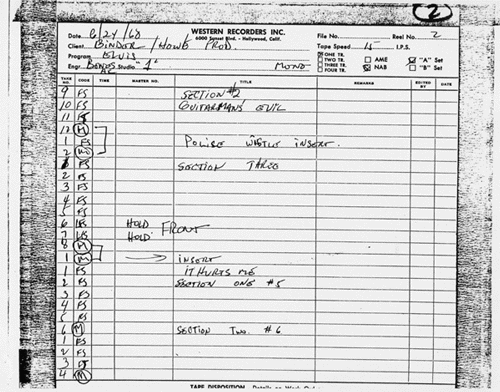 2
WESTERN RECORDERS INC.
6000 Sunset Blvd. - Hollywood, Calif.
Date 6/24/68
File No. Reel No. 2
Client BINDER / HOWE PROD.
Tape Speed 15 I.P.S.
Program ELVIS
ONE TR.
TWO TR.
THREE TR.
FOUR TR.
AME
NAB
"A" Set
"B" Set
Engr. Studio "1" MONO
TAKE NO. CODE TIME MASTER NO. TITLE REMARKS EDITED BY DATE
9 FS SECTION #2
10 FS GUITARMANS EVIL
11 FS
12 M
1 FS POLISE WISTLE INSERT.
2
1 FS SECTION THREE
2 FS
3 FS
4 FS
5 FS
6 LFS HOLD FRONT
7 LFS HOLD
8 M
1 M → INSERT
1 FS IT HURTS ME
2 FS SECTION ONE #5
3 FS
4 FS
5 FS
6 M SECTION TWO. #6
1 FS
2 FS
3
4 M
TAPE DISPOSITION